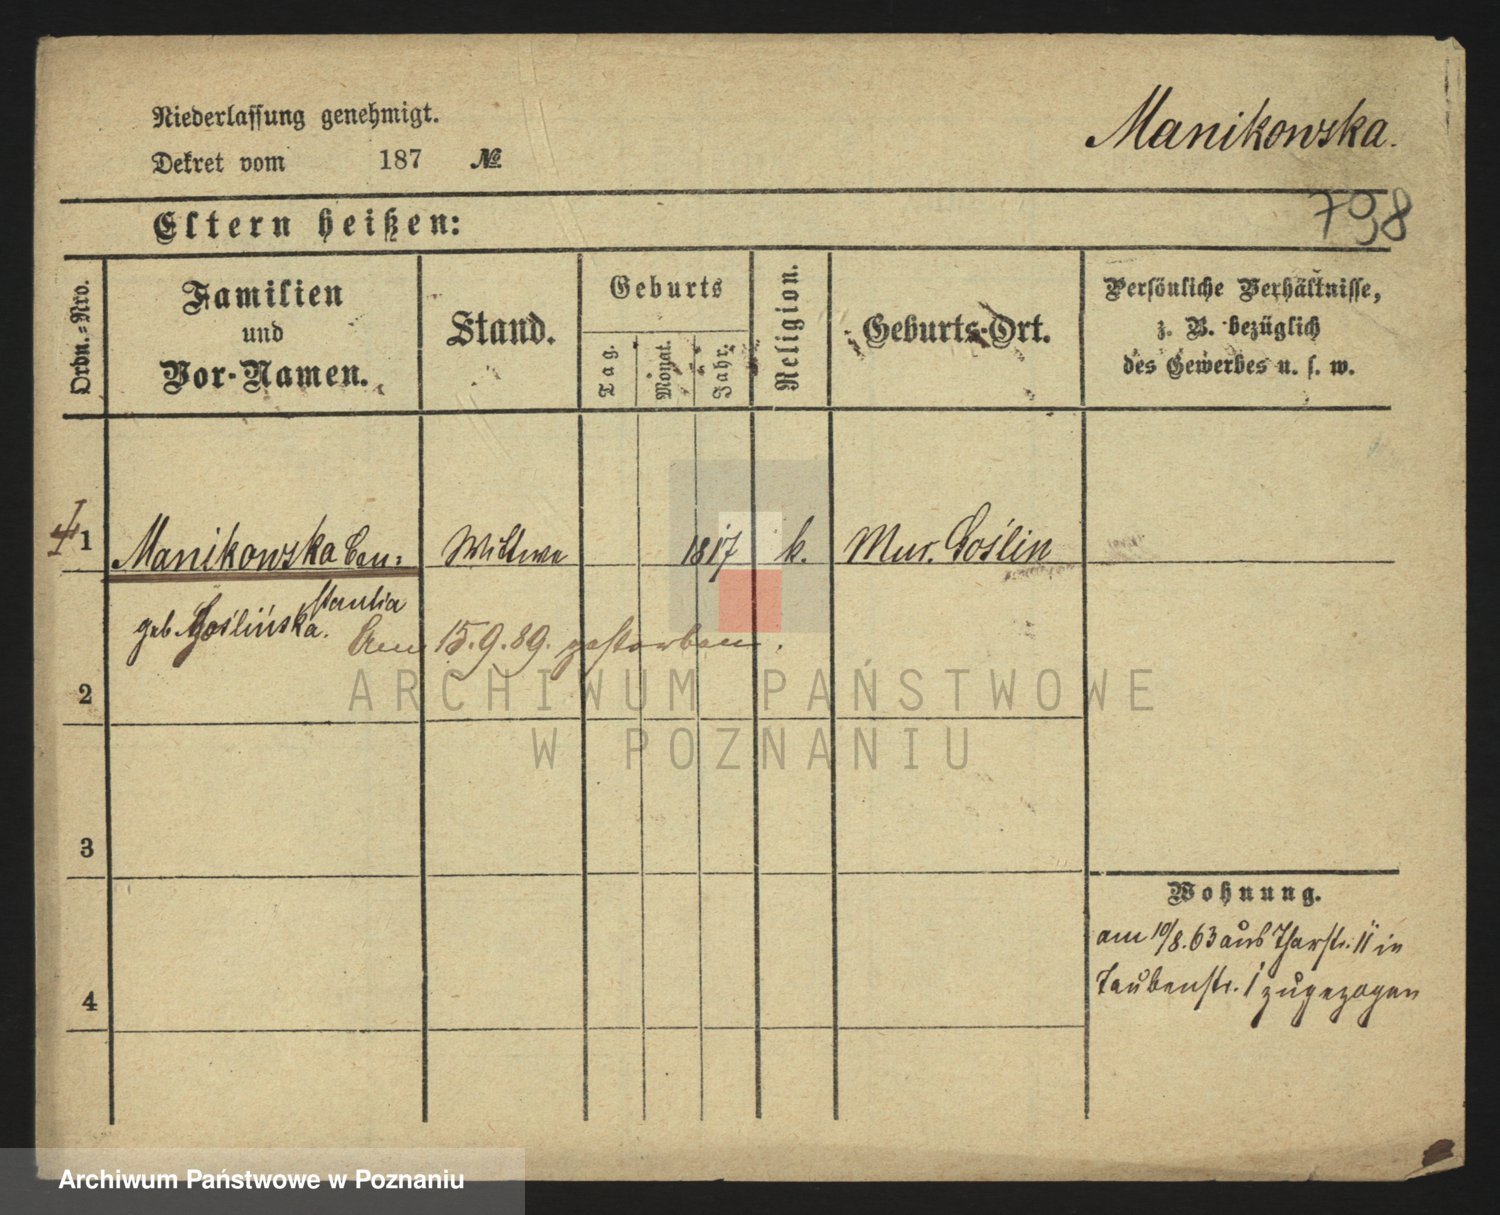 Niederlassung genehmigt.
Dekret vom 187 №
Manikowska.
798
Eltern heißen:
Ordn.-Nro.
Familien
und
Vor-Namen.
Stand.
Geburts
Tag.
Monat.
Jahr.
Religion.
Geburts-Ort.
Persönliche Verhältnisse,
z. B. bezüglich
des Gewerbes u. s. w.
1 Manikowska Con= Wittwe 1817 k. Mur. Goślin
stantia
geb. Goślińska.
Am 15.9.89. gestorben.
2
3
4
Wohnung.
am 10/8. 63 aus Thorstr. 11 in
Taubenstr. 1 zugezogen
ARCHIWUM PAŃSTWOWE
W POZNANIU
Archiwum Państwowe w Poznaniu